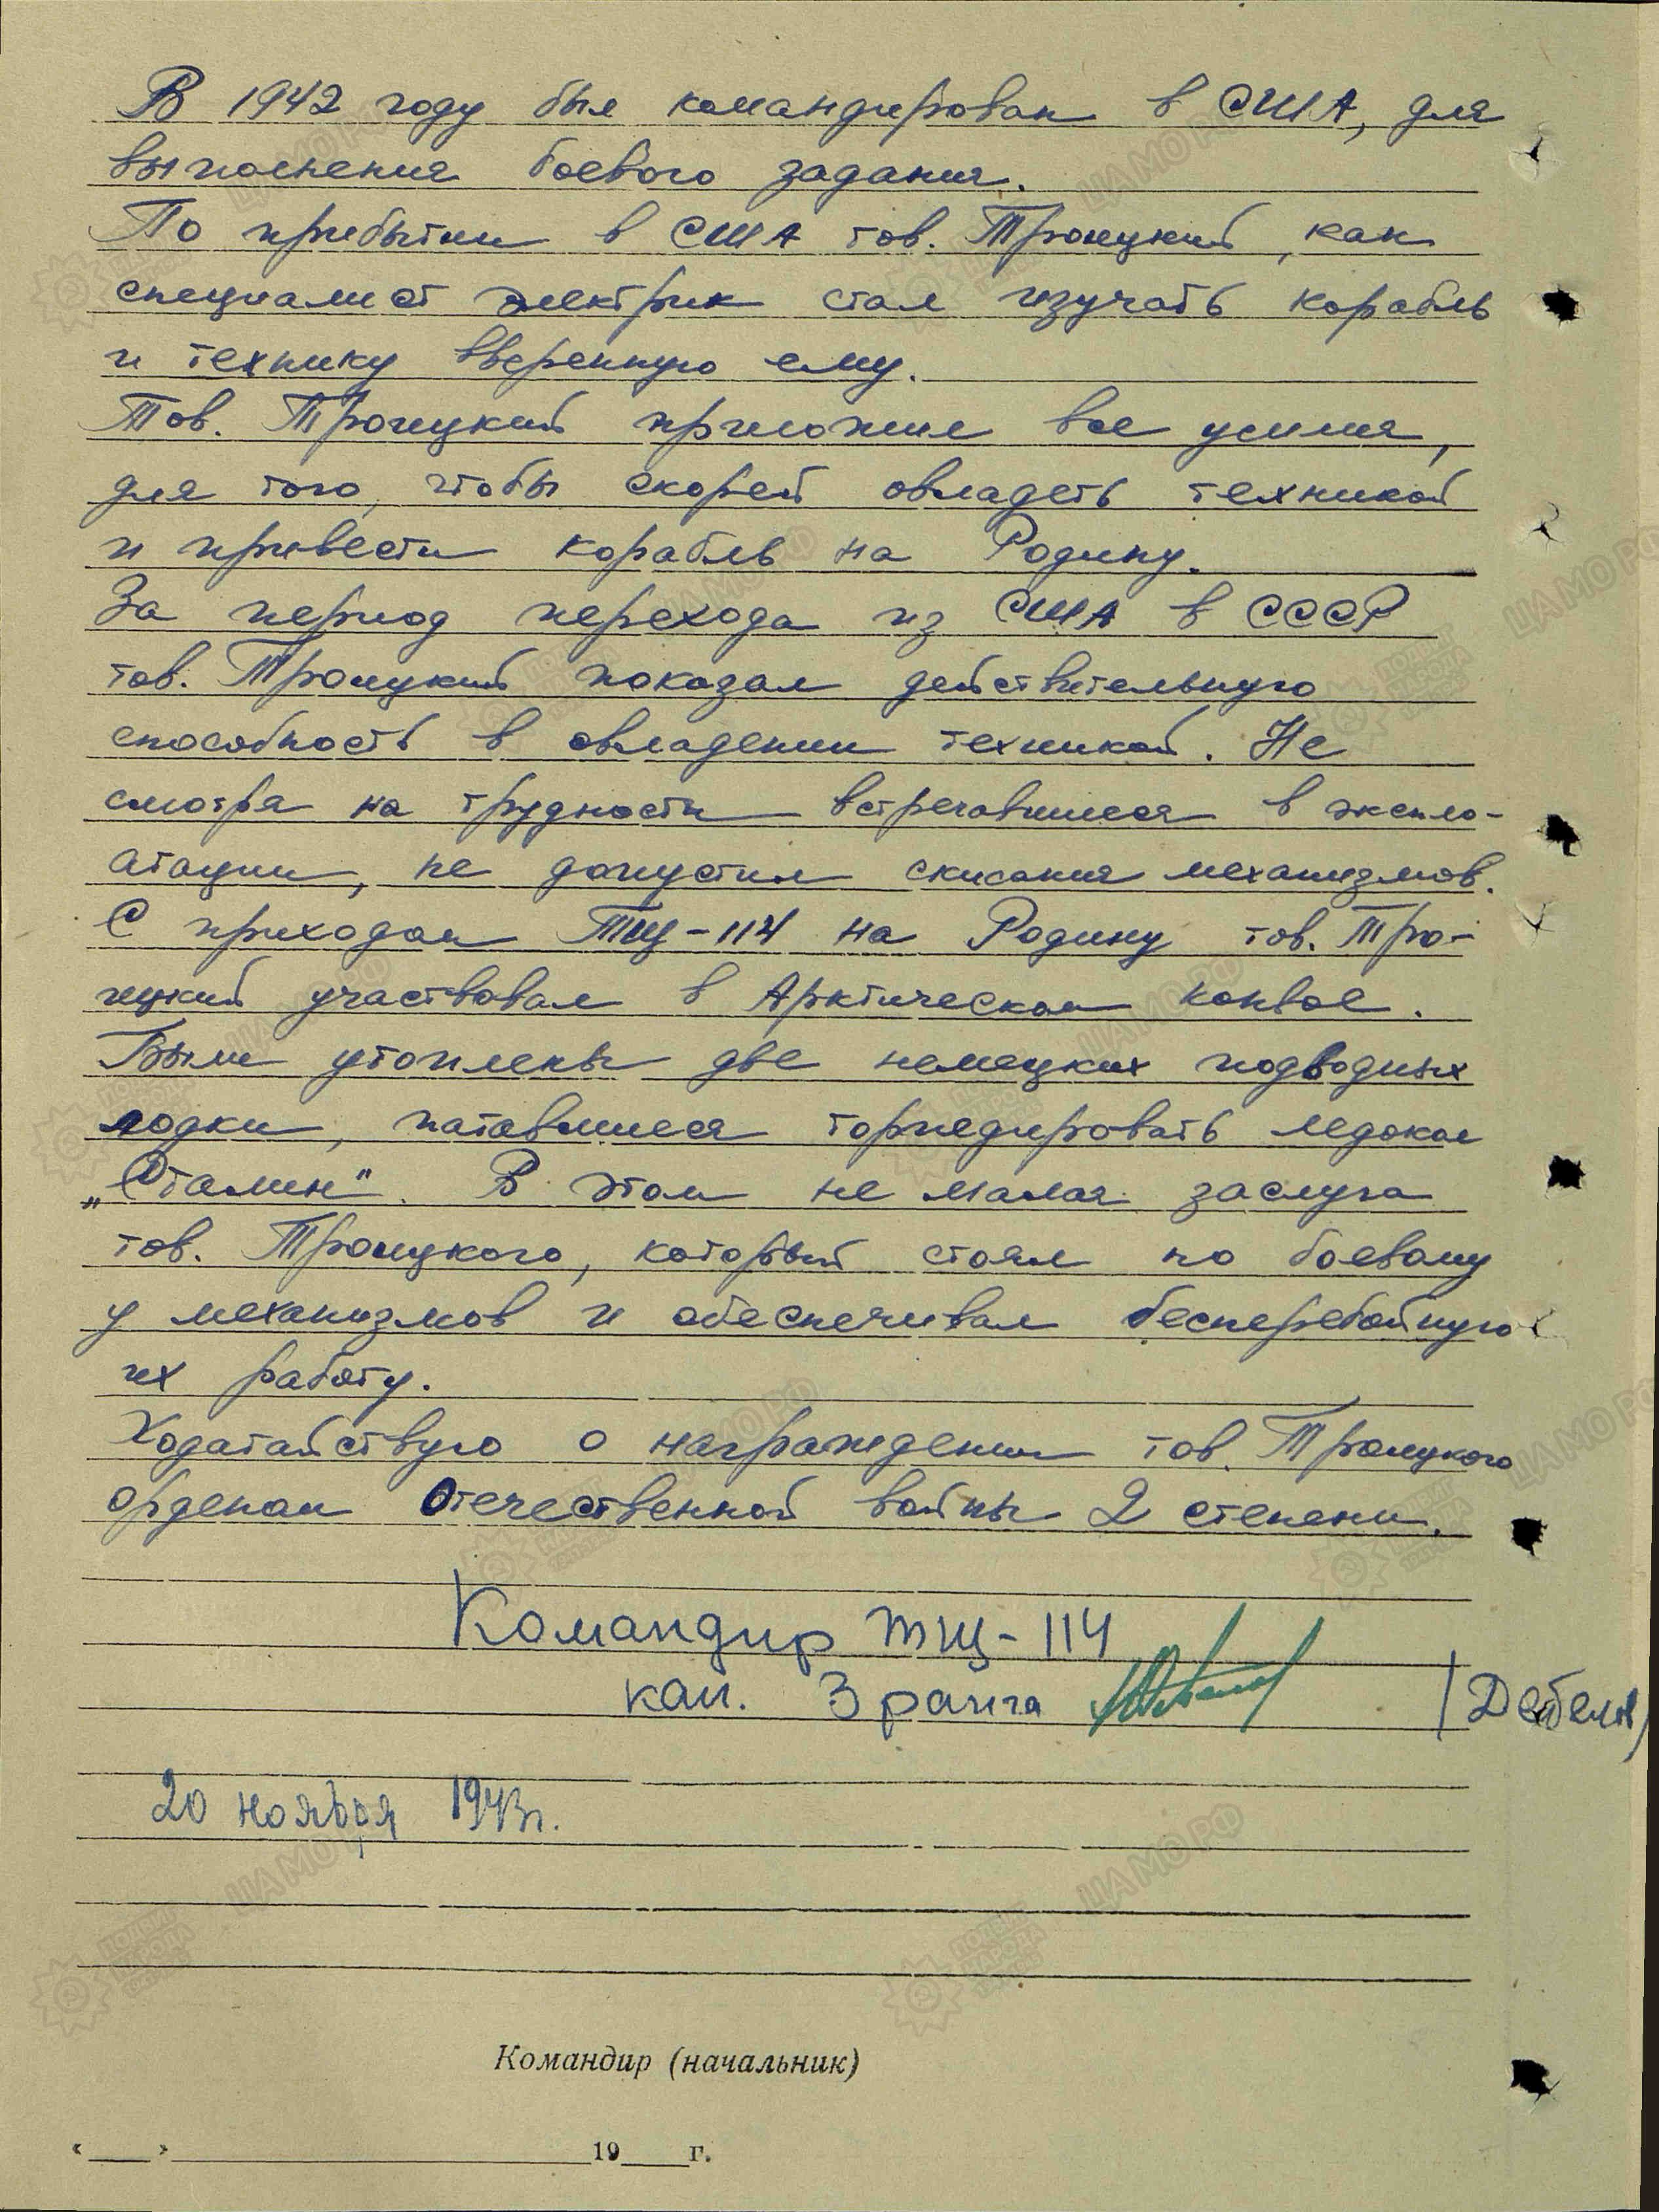 В 1942 году был командирован в США, для
выполнения боевого задания.
По прибытии в США тов. Троицкий, как
специалист электрик стал изучать корабль
и технику вверенную ему.
Тов. Троицкий приложил все усилия,
для того, чтобы скорей овладеть техникой
и привести корабль на Родину.
За период перехода из США в СССР
тов. Троицкий показал действительную
способность в овладении техникой. Не
смотря на трудности встречавшиеся в эксплo-
атации, не допустил скисания механизмов.
С приходом ТЩ-114 на Родину тов. Тро-
ицкий участвовал в Арктическом конвое.
Были утоплены две немецких подводных
лодки, пытавшиеся торпедировать ледокол
„Сталин". В этом не малая заслуга
тов. Троицкого, который стоял по боевому
у механизмов и обеспечивал бесперебойную
их работу.
Ходатайствую о награждении тов. Троицкого
орденом Отечественной войны 2 степени.
Командир ТЩ-114
кап. 3 ранга /Дебелов/
20 ноября 1943г.
Командир (начальник)
« » 19 г.
ЦАМО РФ
ПОДВИГ НАРОДА